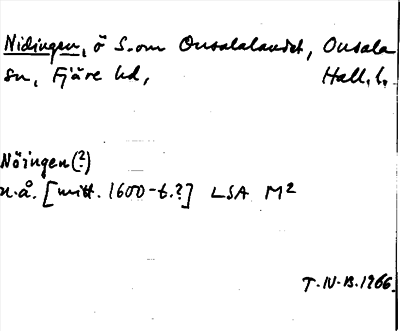 Nidingen, ö S. om Onsalalandet, Onsala
sn, Fjäre hd, Hall. l.
Nöingen (?)
u.å. [mitt. 1600-t.?] LSA M2
T.N-B. 1966.